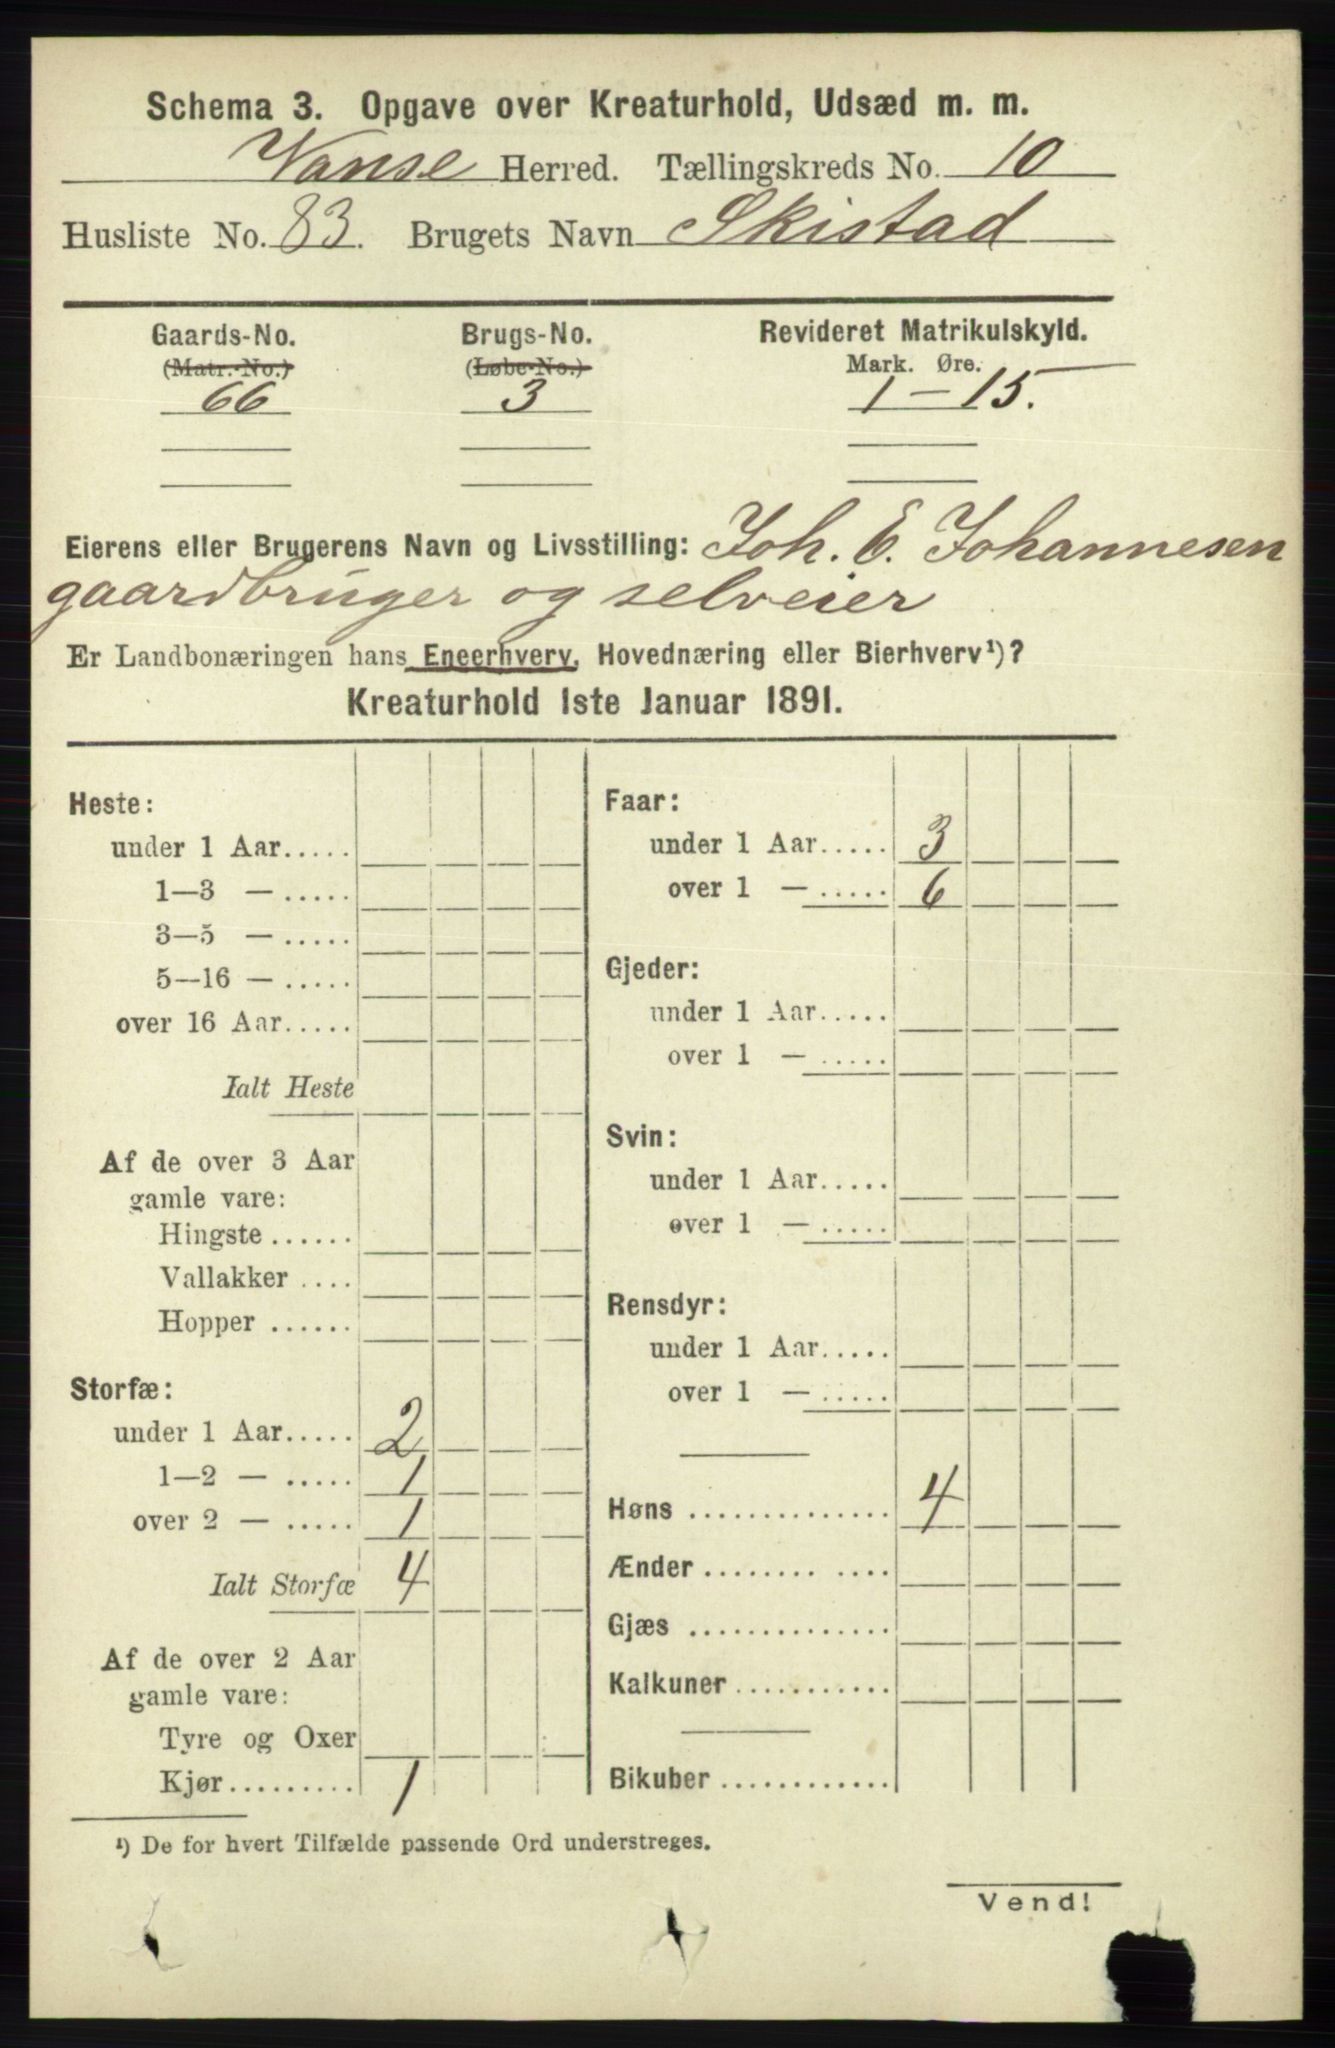 Schema 3. Opgave over Kreaturhold, Udsæd m. m.
Vanse Herred. Tællingskreds No. 10
Husliste No. 83. Brugets Navn Skistad
Gaards-No. Brugs-No. Revideret Matrikulskyld.
(Matr.-No.) (Løbe-No.) Mark. Øre.
66 3 1 - 15.
Eierens eller Brugerens Navn og Livsstilling: Joh. E. Johannesen
gaardbruger og selveier
Er Landbonæringen hans Eneerhverv, Hovednæring eller Bierhverv¹)?
Kreaturhold 1ste Januar 1891.
Heste:
under 1 Aar.....
1—3 — .....
3—5 — .....
5—16 — .....
over 16 Aar.....
Ialt Heste
Af de over 3 Aar
gamle vare:
Hingste ......
Vallakker ....
Hopper ......
Storfæ:
under 1 Aar..... 2
1—2 — ..... 1
over 2 — ..... 1
Ialt Storfæ 4
Af de over 2 Aar
gamle vare:
Tyre og Oxer
Kjør......... 1
Faar:
under 1 Aar..... 3
over 1 — ..... 6
Gjeder:
under 1 Aar.....
over 1 — .....
Svin:
under 1 Aar.....
over 1 — .....
Rensdyr:
under 1 Aar.....
over 1 — .....
Høns .............. 4
Ænder ........ ....
Gjæs ..............
Kalkuner ...........
Bikuber .............
¹) De for hvert Tilfælde passende Ord understreges.
Vend!